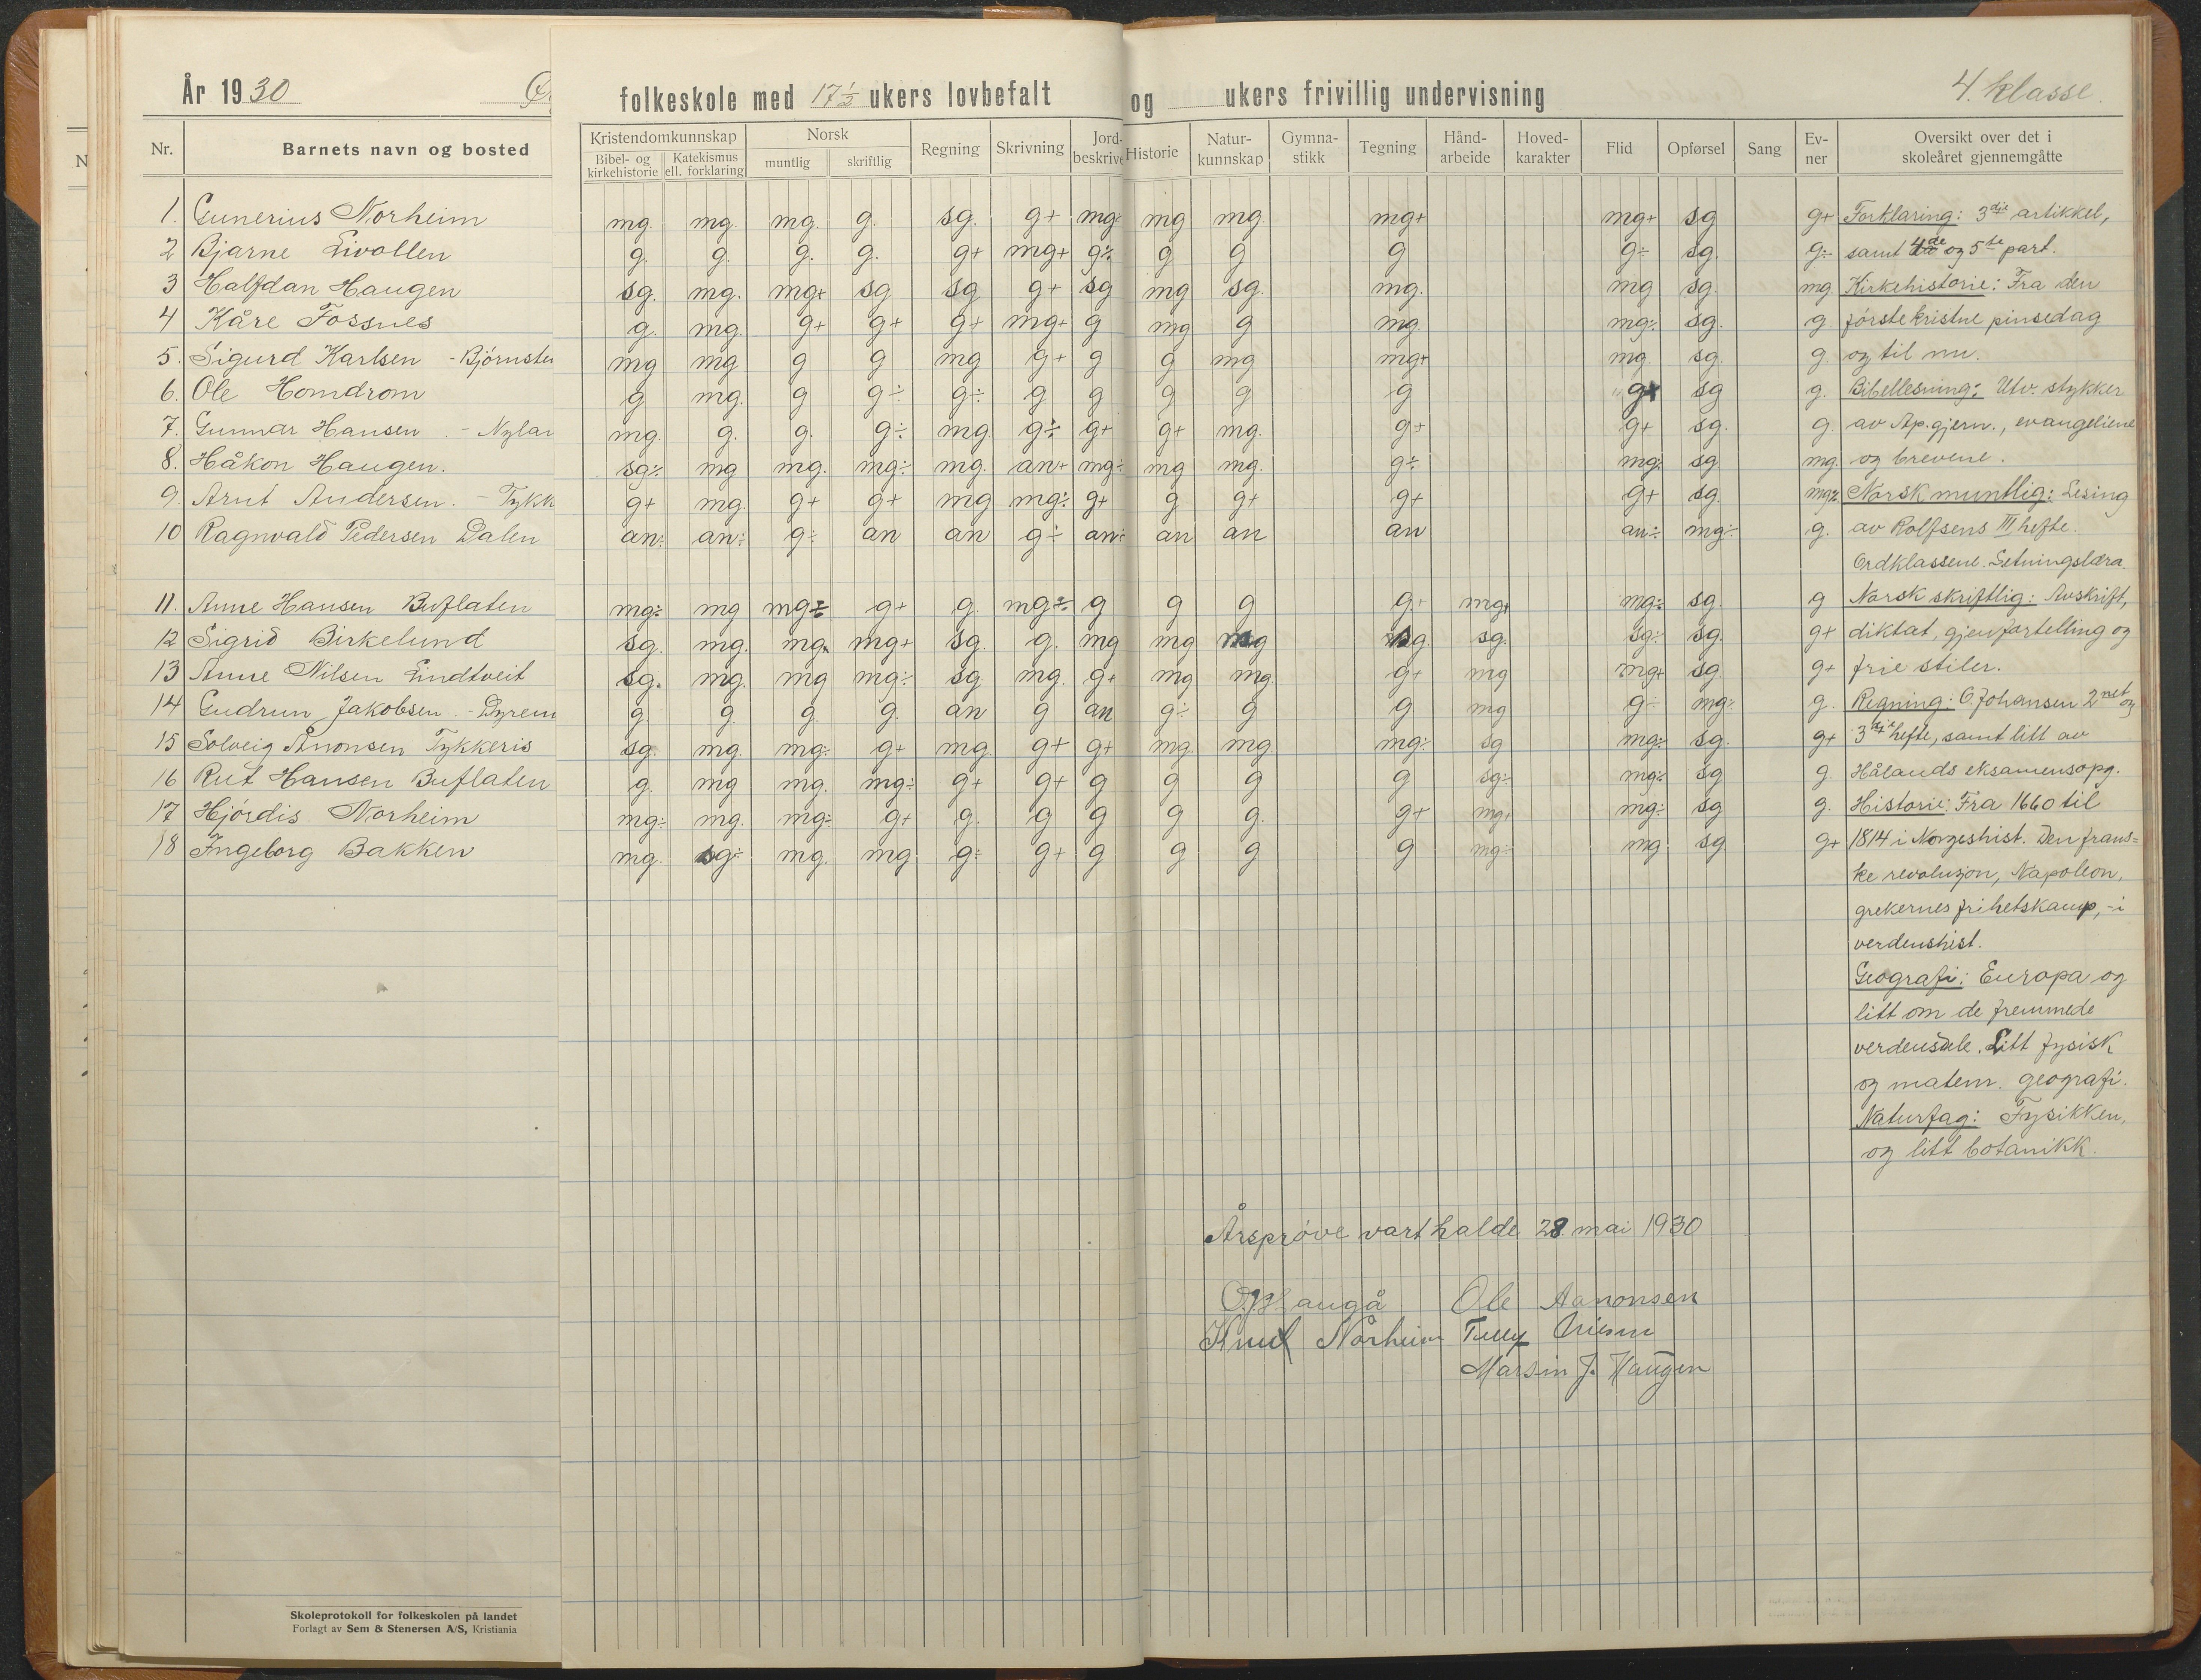 År 1930
folkeskole med 17½ ukers lovbefalt og ukers frivillig undervisning
4. klasse.
Nr. Barnets navn og bosted Kristendomkunnskap Norsk Regning Skrivning Jord- Historie Natur- Gymna- Tegning Hånd- Hoved- Flid Opførsel Sang Ev- Oversikt over det i
Bibel- og kirkehistorie Katekismus ell. forklaring muntlig skriftlig kunnskap stikk arbeide karakter ner skoleåret gjennemgåtte
1. Gunerius Norheim mg. mg. mg. g. sg. g+ mg÷ mg mg. mg+ mg+ sg g+ Forklaring: 3die artikkel,
2 Bjarne Livollen g. g. g. g. g+ mg+ g÷ g g g g÷ sg. g÷ samt 4de og 5te part.
3 Halfdan Haugen sg. mg. mg+ sg sg g+ sg mg sg. mg. mg sg. mg Kirkehistorie: Fra den
4 Kåre Fossnes g. mg. g+ g+ g+ mg+ g mg g mg. mg÷ sg. g. første kristne pinsedag
5. Sigurd Karlsen - Bjørnste mg mg g g mg g+ g g mg mg+ mg. sg. g. og til nu.
6. Ole Homdrom g mg. g g÷ g÷ g g g g g g+ sg g. Bibellesning: Utv. stykker
7. Gunnar Hansen - Nylan mg. g. g. g÷ mg. g÷ g+ g+ mg. g+ g+ sg. g. av Ap.gjern., evangeliene
8. Håkon Haugen. sg÷ mg mg. mg÷ mg. an+ mg÷ mg mg. g÷ mg÷ sg. mg. og brevene.
9. Arnt Andersen. - Tykk g+ mg. g+ g+ mg mg÷ g+ g g+ g+ g+ sg. mg÷ Norsk muntlig: Lesing
10 Ragnvald Pedersen Dalen an÷ an÷ g÷ an an g÷ an÷ an an an an÷ mg÷ g. av Rolfsens III hefte.
Ordklassene. Setningslæra.
11. Anne Hansen Buflaten mg÷ mg mg÷ g+ g. mg÷ g g g g+ mg+ mg÷ sg. g Norsk skriftlig: Avskrift,
12 Sigrid Birkelund sg. mg. mg. mg+ sg. g. mg mg mg sg. sg. sg÷ sg. g+ diktat, gjenfortelling og
13 Anne Nilsen Lindtveit sg. mg. mg mg÷ sg mg. g+ mg mg. g+ mg mg+ sg. g+ frie stiler.
14 Gudrun Jakobsen - Dyrem g. g. g. g. an g an g÷ g. g. mg g÷ mg÷ g. Regning: O. Johansen 2net og
15 Solveig Ånonsen Tykkeris sg. mg. mg÷ g+ mg. g+ g+ mg. mg. mg÷ sg mg÷ sg. g+ 3die hefte, samt litt av
16 Rut Hansen Buflaten g. mg mg. mg÷ g+ g+ g g g g sg÷ mg÷ sg g. Hålands eksamensopg.
17 Hjördis Norheim mg÷ mg. mg÷ g+ g. g g g g. g+ mg+ mg÷ sg g. Historie: Fra 1660 til
18 Ingeborg Bakken mg. sg÷ mg. mg g÷ g+ g g g g mg÷ mg sg. g+ 1814 i Norgeshist. Den frans=
ke revolusjon, Napoleon,
grekernes frihetskamp, - i
verdenshist.
Geografi: Europa og
litt om de fremmede
verdensdele. Litt fysisk
og matem. geografi.
Naturfag: Fysikken,
og litt botanikk.
Årsprøve vart halde 28. mai 1930
Ole Aanonsen
Knut Norheim Telly
Marsin J. Haugen
Skoleprotokoll for folkeskolen på landet
Forlagt av Sem & Stenersen A/S, Kristiania